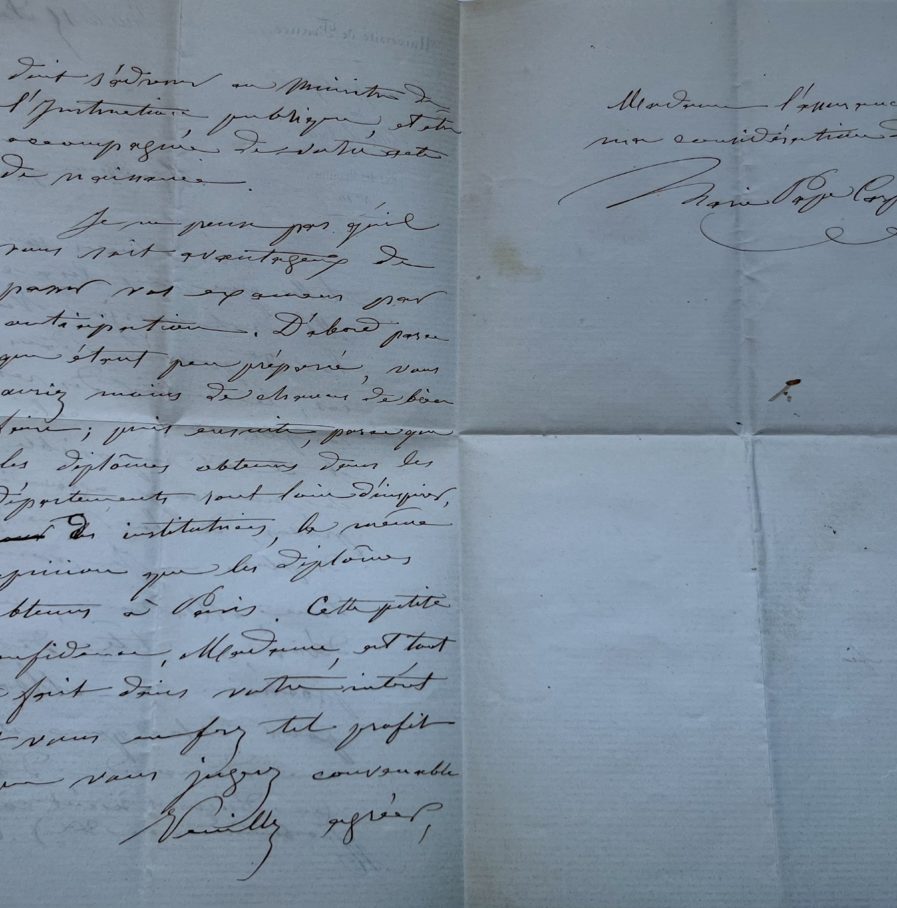 doit s'adresser au Ministre de
l'Instruction publique, et être
accompagnée de votre acte
de naissance.
Je ne pense pas qu'il
vous soit avantageux de
passer vos examens par
anticipation. D'abord parce
que étant peu préparée, vous
auriez moins de chances de bien
faire; puis ensuite, parce que
les diplômes obtenus dans les
départements sont loin d'inspirer,
des institutrices, la même
opinion que les diplômes
obtenus à Paris. Cette petite
confidence, Madame, est tout
à fait dans votre intérêt
et vous en ferez tel profit
que vous jugerez convenable
Veuillez agréer,
Madame l'assurance
ma considération
Marie Pape